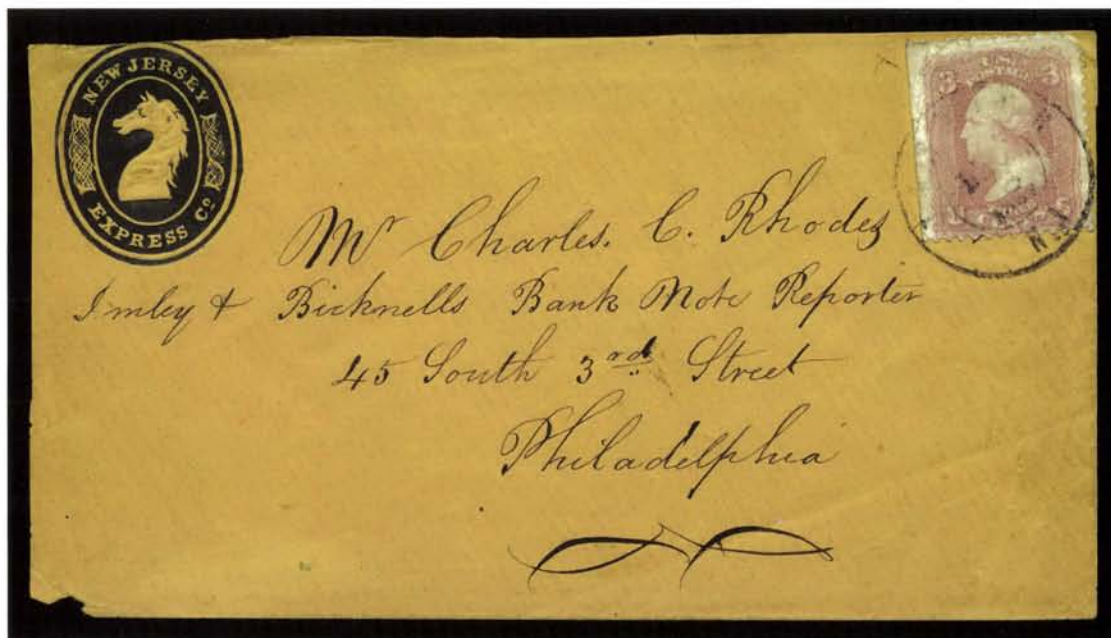 NEW JERSEY
EXPRESS Co
3 U.S. 3
POSTAGE
N.J.
Mr Charles. C. Rhodes
Imley & Bicknells Bank Note Reporter
45 South 3rd Street
Philadelphia